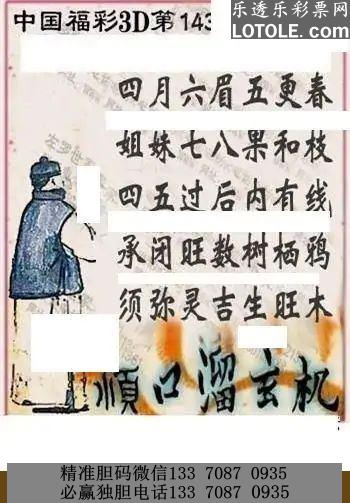 中国福彩3D第143
乐透乐彩票网
LOTOLE.COM
四月六眉五更春
姐妹七八果和枝
四五过后内有线
承闭旺数树栖鸦
须弥灵吉生旺木
顺口溜玄机
精准胆码微信133 7087 0935
必赢独胆电话133 7087 0935